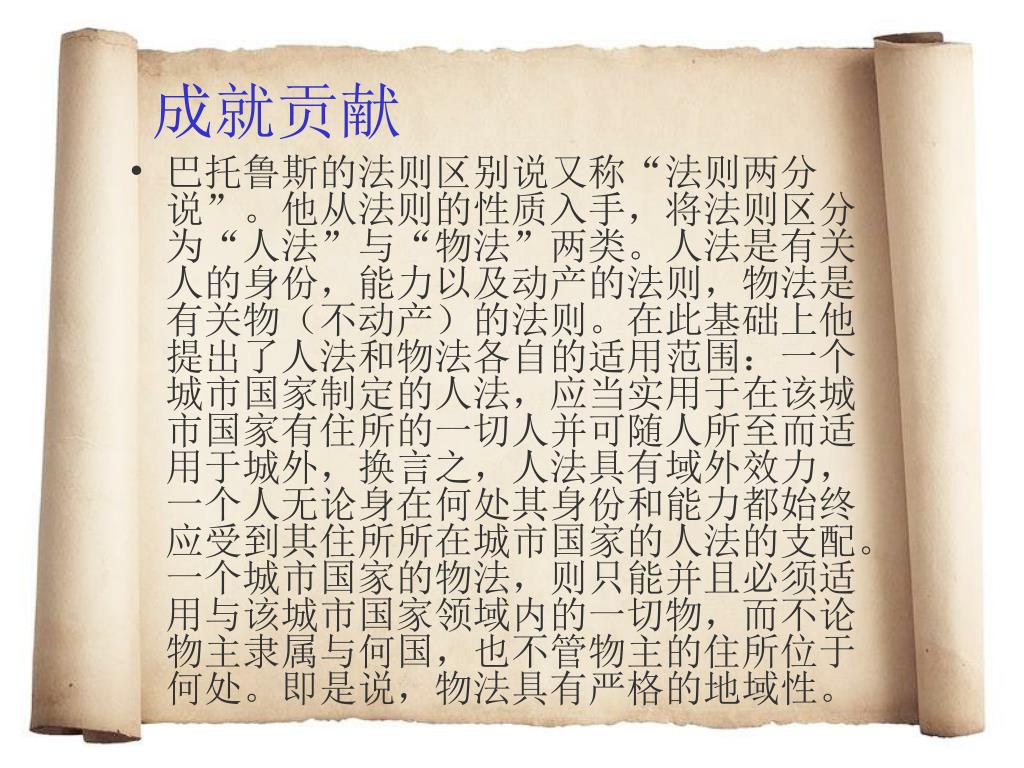 成就贡献
• 巴托鲁斯的法则区别说又称“法则两分
说”。他从法则的性质入手，将法则区分
为“人法”与“物法”两类。人法是有关
人的身份，能力以及动产的法则，物法是
有关物（不动产）的法则。在此基础上他
提出了人法和物法各自的适用范围：一个
城市国家制定的人法，应当实用于在该城
市国家有住所的一切人并可随人所至而适
用于城外，换言之，人法具有域外效力，
一个人无论身在何处其身份和能力都始终
应受到其住所所在城市国家的人法的支配。
一个城市国家的物法，则只能并且必须适
用与该城市国家领域内的一切物，而不论
物主隶属与何国，也不管物主的住所位于
何处。即是说，物法具有严格的地域性。